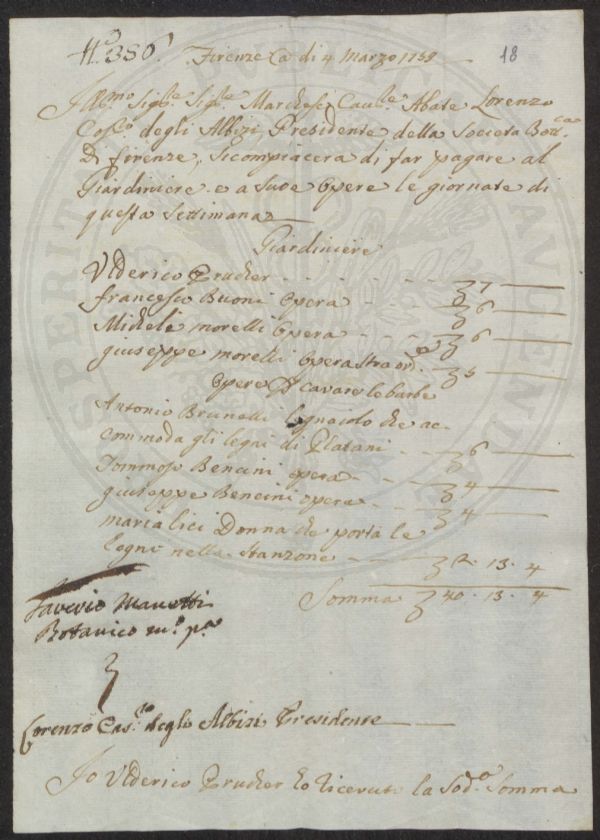 N.º 386. Firenze Ca di 4 Marzo 1758 18
Ill.mo Sig.re Sig.re Marchese Caval.e Abate Lorenzo
Cos.o degli Albizi, Presidente della Societa Bott.ca
Di firenze, si compiacera di far pagare al
Giardiniere e a sue Opere le giornate di
questa Settimana
Giardiniere
Ulderico Prucker - - - - 7
francesco Buoni Opera - - 6
Michele morelli Opera - - 6
giuseppe morelli Opera Straord.a - 5
Opere P cavare le barbe
Antonio Brunelli legnaiolo che ac-
commoda gli legni di Platani - - 6
Tommaso Bencini opera - - 4
giuseppe Bencini opera - - 4
maria lici Donna che porta le
legni nella Stanzone - 2. 13. 4
Somma 40. 13. 4
Saverio Manetti
Botanico m.o p.a
Lorenzo Cas.to degli Albizi Presidente
Io Ulderico Prucker ho Ricevuto la Sod.a Somma
PUBLICAE
PROSPERITATI
AUGENDAE